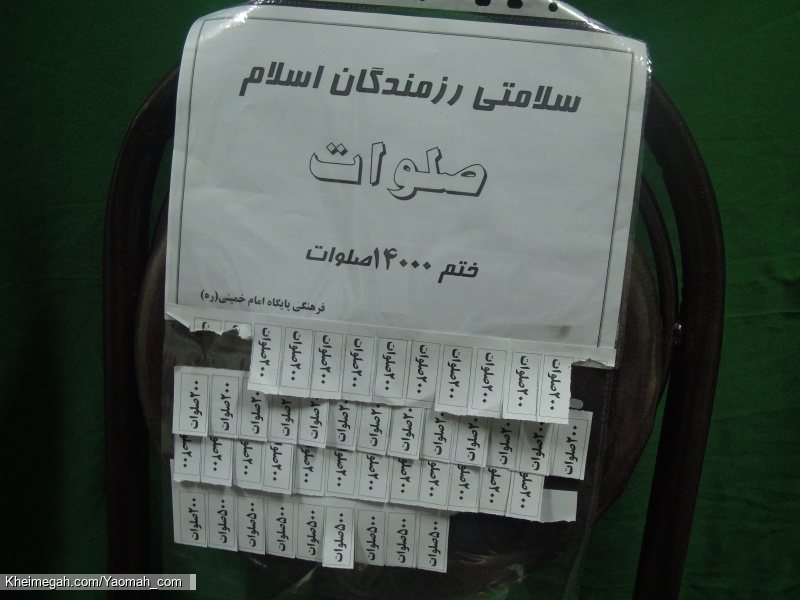 سلامتی رزمندگان اسلام
صلوات
ختم ۱۴۰۰۰ صلوات
فرهنگی پایگاه امام خمینی(ره)
۲۰۰صلوات ۲۰۰صلوات ۲۰۰صلوات ۲۰۰صلوات ۲۰۰صلوات ۲۰۰صلوات ۲۰۰صلوات ۲۰۰صلوات ۲۰۰صلوات ۲۰۰صلوات
۲۰۰صلوات ۲۰۰صلوات ۲۰۰صلوات ۲۰۰صلوات ۲۰۰صلوات ۲۰۰صلوات ۲۰۰صلوات ۲۰۰صلوات ۲۰۰صلوات ۲۰۰صلوات ۲۰۰صلوات ۲۰۰صلوات ۲۰۰صلوات
۲۰۰صلوات ۲۰۰صلوات ۲۰۰صلوات ۲۰۰صلوات ۲۰۰صلوات ۲۰۰صلوات ۲۰۰صلوات ۲۰۰صلوات ۲۰۰صلوات ۲۰۰صلوات ۲۰۰صلوات ۲۰۰صلوات
۵۰۰صلوات ۵۰۰صلوات ۵۰۰صلوات ۵۰۰صلوات ۵۰۰صلوات ۵۰۰صلوات ۵۰۰صلوات ۵۰۰صلوات ۲۰۰صلوات
Kheimegah.com/Yaomah_com